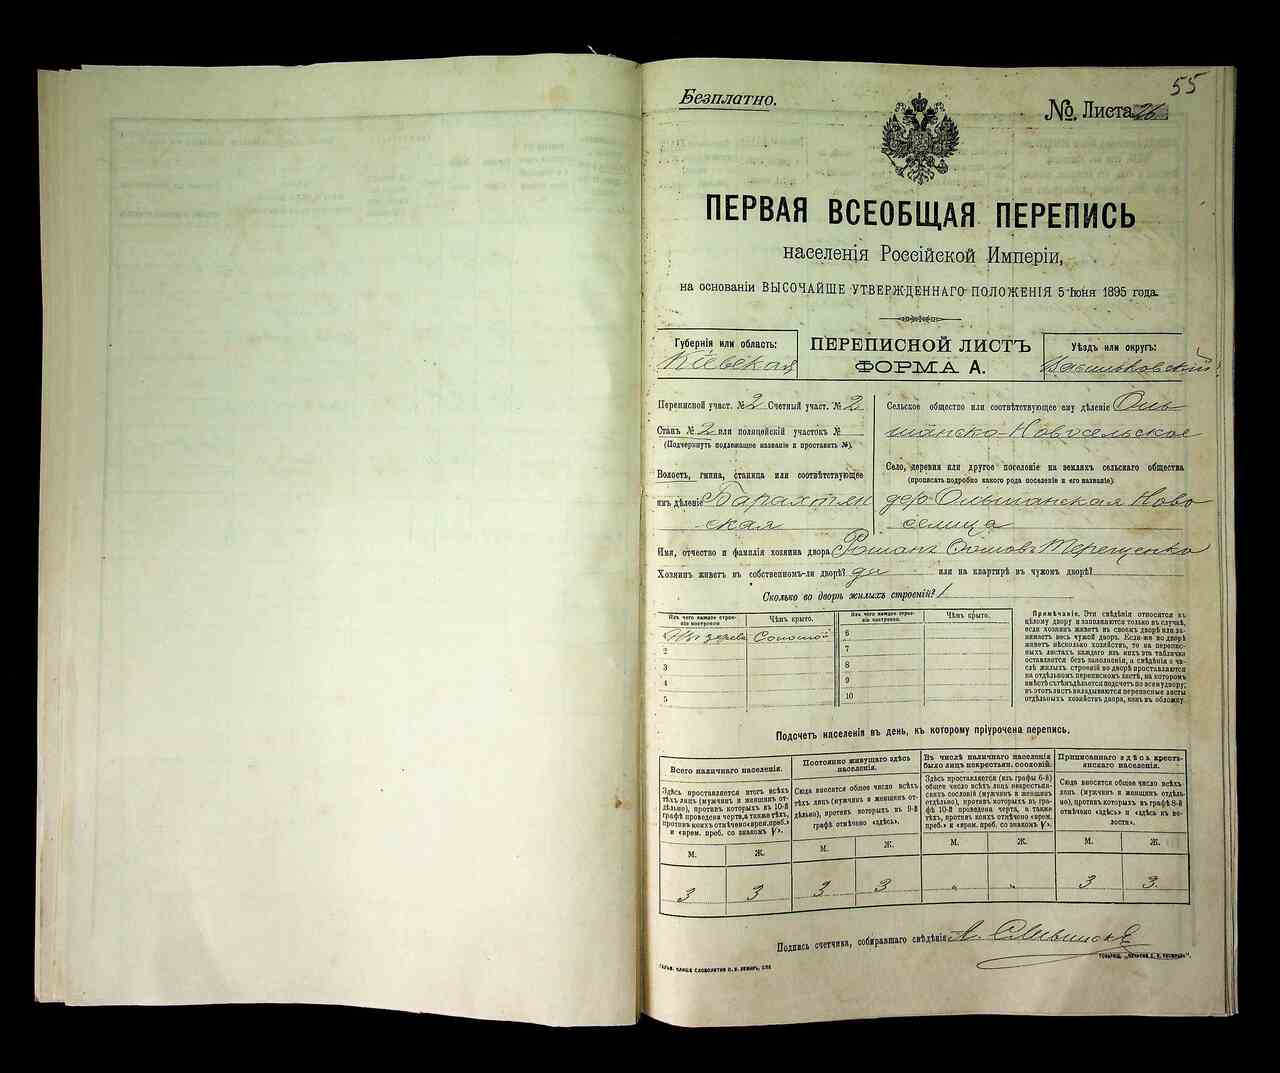 55
Безплатно.
№ Листа 26
ПЕРВАЯ ВСЕОБЩАЯ ПЕРЕПИСЬ
населенія Россійской Имперіи,
на основаніи ВЫСОЧАЙШЕ УТВЕРЖДЕННАГО ПОЛОЖЕНІЯ 5 Іюня 1895 года.
Губернія или область:
Кіевская
ПЕРЕПИСНОЙ ЛИСТЪ
ФОРМА А.
Уѣздъ или округъ:
Васильковскій
Переписной участ. № 2 Счетный участ. № 2
Станъ № 2 или полицейскій участокъ №
(Подчеркнуть подлежащее названіе и проставить №).
Волость, гмина, станица или соотвѣтствующее
имъ дѣленіе Барахтян
ская
Сельское общество или соотвѣтствующее ему дѣленіе Оль
шанско-Новосельское
Село, деревня или другое поселеніе на земляхъ сельскаго общества
(прописать подробно какого рода поселеніе и его названіе):
дер. Ольшанская Ново
селица
Имя, отчество и фамилія хозяина двора Романъ Фомовъ Терещенко
Хозяинъ живетъ въ собственномъ-ли дворѣ? да или на квартирѣ въ чужомъ дворѣ?
Сколько во дворѣ жилыхъ строеній? 1
Изъ чего каждое строеніе построено
Чѣмъ крыто.
Изъ дерева Соломой
2
3
4
5
Изъ чего каждое строеніе построено.
Чѣмъ крыто.
6
7
8
9
10
Примѣчаніе. Эти свѣдѣнія относятся къ
цѣлому двору и заполняются только въ случаѣ,
если хозяинъ живетъ въ своемъ дворѣ или занимаетъ
весь чужой дворъ. Если-же во дворѣ
живетъ нѣсколько хозяйствъ, то на переписныхъ
листахъ каждаго изъ нихъ эта табличка
оставляется безъ заполненія, а свѣдѣнія о числѣ
жилыхъ строеній во дворѣ проставляются
на отдѣльномъ переписномъ листѣ, на которомъ
вмѣстѣ съ тѣмъ дѣлается подсчетъ по всему двору;
въ этотъ листъ вкладываются переписные листы
отдѣльныхъ хозяйствъ двора, какъ въ обложку.
Подсчетъ населенія въ день, къ которому пріурочена перепись.
Всего наличнаго населенія.
Здѣсь проставляется итогъ всѣхъ
тѣхъ лицъ (мужчинъ и женщинъ отдѣльно),
противъ которыхъ въ 10-й
графѣ проведена черта, а также тѣхъ,
противъ коихъ отмѣчено «врем. преб.»
и «врем. преб. со знакомъ V».
Постоянно живущаго здѣсь
населенія.
Сюда вносится общее число всѣхъ
тѣхъ лицъ (мужчинъ и женщинъ отдѣльно),
противъ которыхъ въ 9-й
графѣ отмѣчено «здѣсь».
Въ числѣ наличнаго населенія
было лицъ некрестьян. сословій.
Здѣсь проставляется (изъ графы 6-й)
общее число всѣхъ лицъ некрестьянскихъ
сословій (мужчинъ и женщинъ
отдѣльно), противъ которыхъ въ графѣ
10-й проведена черта, а также
тѣхъ, противъ коихъ отмѣчено «врем.
преб.» и «врем. преб. со знакомъ V».
Приписаннаго здѣсь крестьянскаго
населенія.
Сюда вносится общее число всѣхъ
лицъ (мужчинъ и женщинъ отдѣльно),
противъ которыхъ въ графѣ 8-й
отмѣчено «здѣсь» и «здѣсь къ волости».
М. Ж. М. Ж. М. Ж. М. Ж.
3 3 3 3 „ „ 3 3
Подпись счетчика, собиравшаго свѣдѣнія